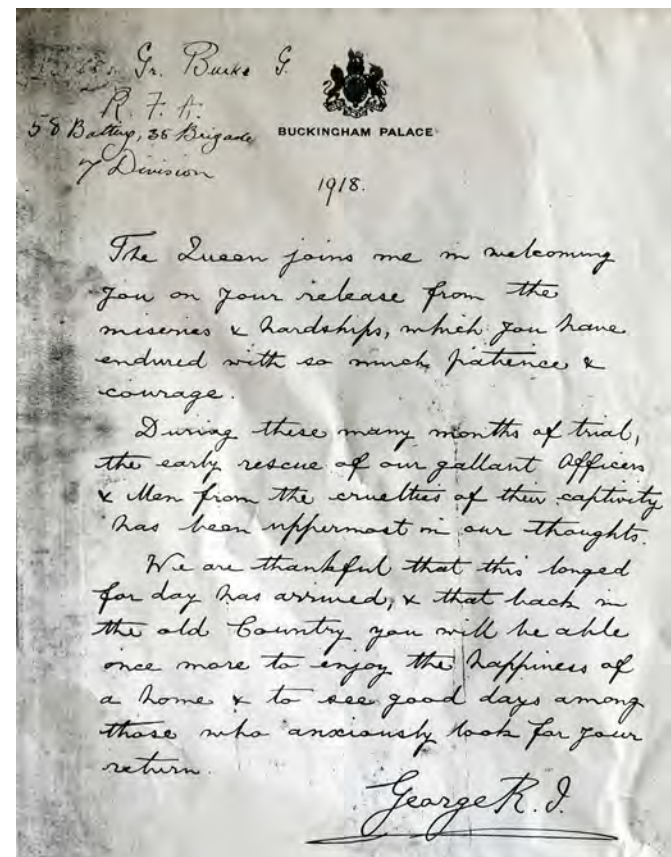 Gr. Burke G.
R. F. A.
58 Battery, 35 Brigade
7 Division
BUCKINGHAM PALACE
1918.
The Queen joins me in welcoming
you on your release from the
miseries & hardships, which you have
endured with so much patience &
courage.
During these many months of trial,
the early rescue of our gallant Officers
& Men from the cruelties of their captivity
has been uppermost in our thoughts.
We are thankful that this longed
for day has arrived, & that back in
the old Country you will be able
once more to enjoy the happiness of
a home & to see good days among
those who anxiously look for your
return.
George R. I.